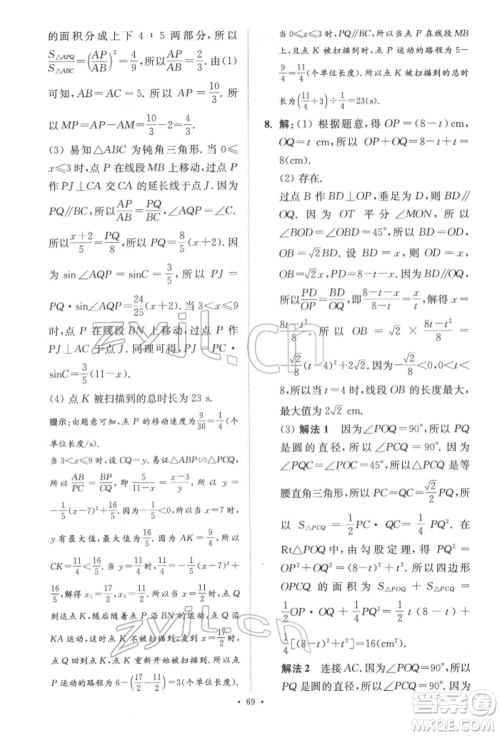 的面积分成上下 4∶5 两部分,所以
S△APQ/S△ABC=(AP/AB)²=4/9,所以AP/AB=2/3. 由(1)
可知,AB=AC=5,所以 AP=10/3. 所
以 MP=AP-AM=10/3-2=4/3.
(3) 易知△ABC 为钝角三角形. 当 0
≤x≤3 时,点 P 在线段 MB 上移动. 过
点 P 作 PJ⊥CA 交 CA 的延长线于点 J.
因为 PQ∥BC,所以AP/AB=PQ/BC,AB=5,
所以x+2/5=PQ/8. 所以 PQ=8/5(x+2). 因
为 sin∠AQP=sinC=3/5,所以 PJ=
PQ·sin∠AQP=24/25(x+2). 当 3≤x≤9
时,点 P 在线段 BN 上移动. 过点 P 作
PJ⊥AC 于点 J. 同理可得,PJ=CP·
sinC=3/5(11-x).
(4) 点 K 被扫描到的总时长为 23 s.
提示:由题意可知,点 P 的移动速度为9/36=1/4(个
单位长度/s).
当 3<x≤9 时,设 CQ=y. 易证△ABP∽△PCQ,所
以AB/PC=BP/CQ. 所以5/11-x=x-3/y. 所以 y=
-1/5(x-7)²+16/5. 因为-1/5<0,所以当 x=7 时,y
有最大值,最大值为16/5. 因为 AK=9/4,所以
CK=11/4<16/5. 当 y=11/4时,11/4=-1/5(x-7)²+
16/5,解得 x₁=17/2,x₂=11/2. 因为 5/2<16/5,所以点 Q
从点 K 随着点 P 沿 BN 的运动,点 Q 沿
KA 运动,此时点 K 不被扫描到;当点 Q
点 K 重新开始被扫描到时,点 P
运动的路程为6-(17/2-11/2)=3(个单位长度).
当 0≤x≤3 时,点 P 在 AB 上运动,PQ∥BC,
所以点 K 被扫描到时,点 P 运动的路程为 5-
9/4=11/4(个单位长度). 所以点 K 被扫描到的总时
长为(11/4+3)÷1/4=23(s).
8. 解:(1) 根据题意,得 OP=(8-t)cm,
OQ=t cm. 所以 OP+OQ=8-t+t=
8(cm).
(2) 存在.
过点 B 作 BD⊥OP,垂足为 D,则
BD∥OQ. 因为 OT 平分∠MON,所以
∠BOD=∠OBD=45°. 所以 BD=OD,
OB=√2BD. 设 BD=x cm,则 OD=
x cm,OB=√2x cm,PD=(8-t-x)cm.
因为 BD∥OQ,所以PD/OP=BD/OQ. 所以
8-t-x/8-t=x/t. 所以 x=8t-t²/8. 所以 OB=
√2·8t-t²/8=-√2/8(t-4)²+2√2. 因为
-√2/8<0,
所以当 t=4 时,线段 OB 的长度最大,
最大值为 2√2 cm.
(3) 解法 1 因为∠POQ=90°,所以 PQ
是圆的直径,所以∠PCQ=90°. 因为
∠PQC=∠POC=45°,所以△PCQ是等
腰直角三角形. 所以 PC=QC=√2/2PQ. 所
以 S△PCQ=1/2PC·QC=1/4PQ². 在
Rt△POQ 中,由勾股定理,得 PQ²=
OP²+OQ²=(8-t)²+t². 所以四边形
OPCQ 的面积为 S△POQ+S△PCQ=
1/2OP·OQ+1/4PQ²=1/2t(8-t)+
1/4[(8-t)²+t²]=16(cm²).
解法 2 连接 AC. 因为∠POQ=90°,所以
PQ 是圆的直径,所以∠PCQ=90°. 因为
· 69 ·
zyjl.cn
zyjl.cn
答案圈
MXQE.COM